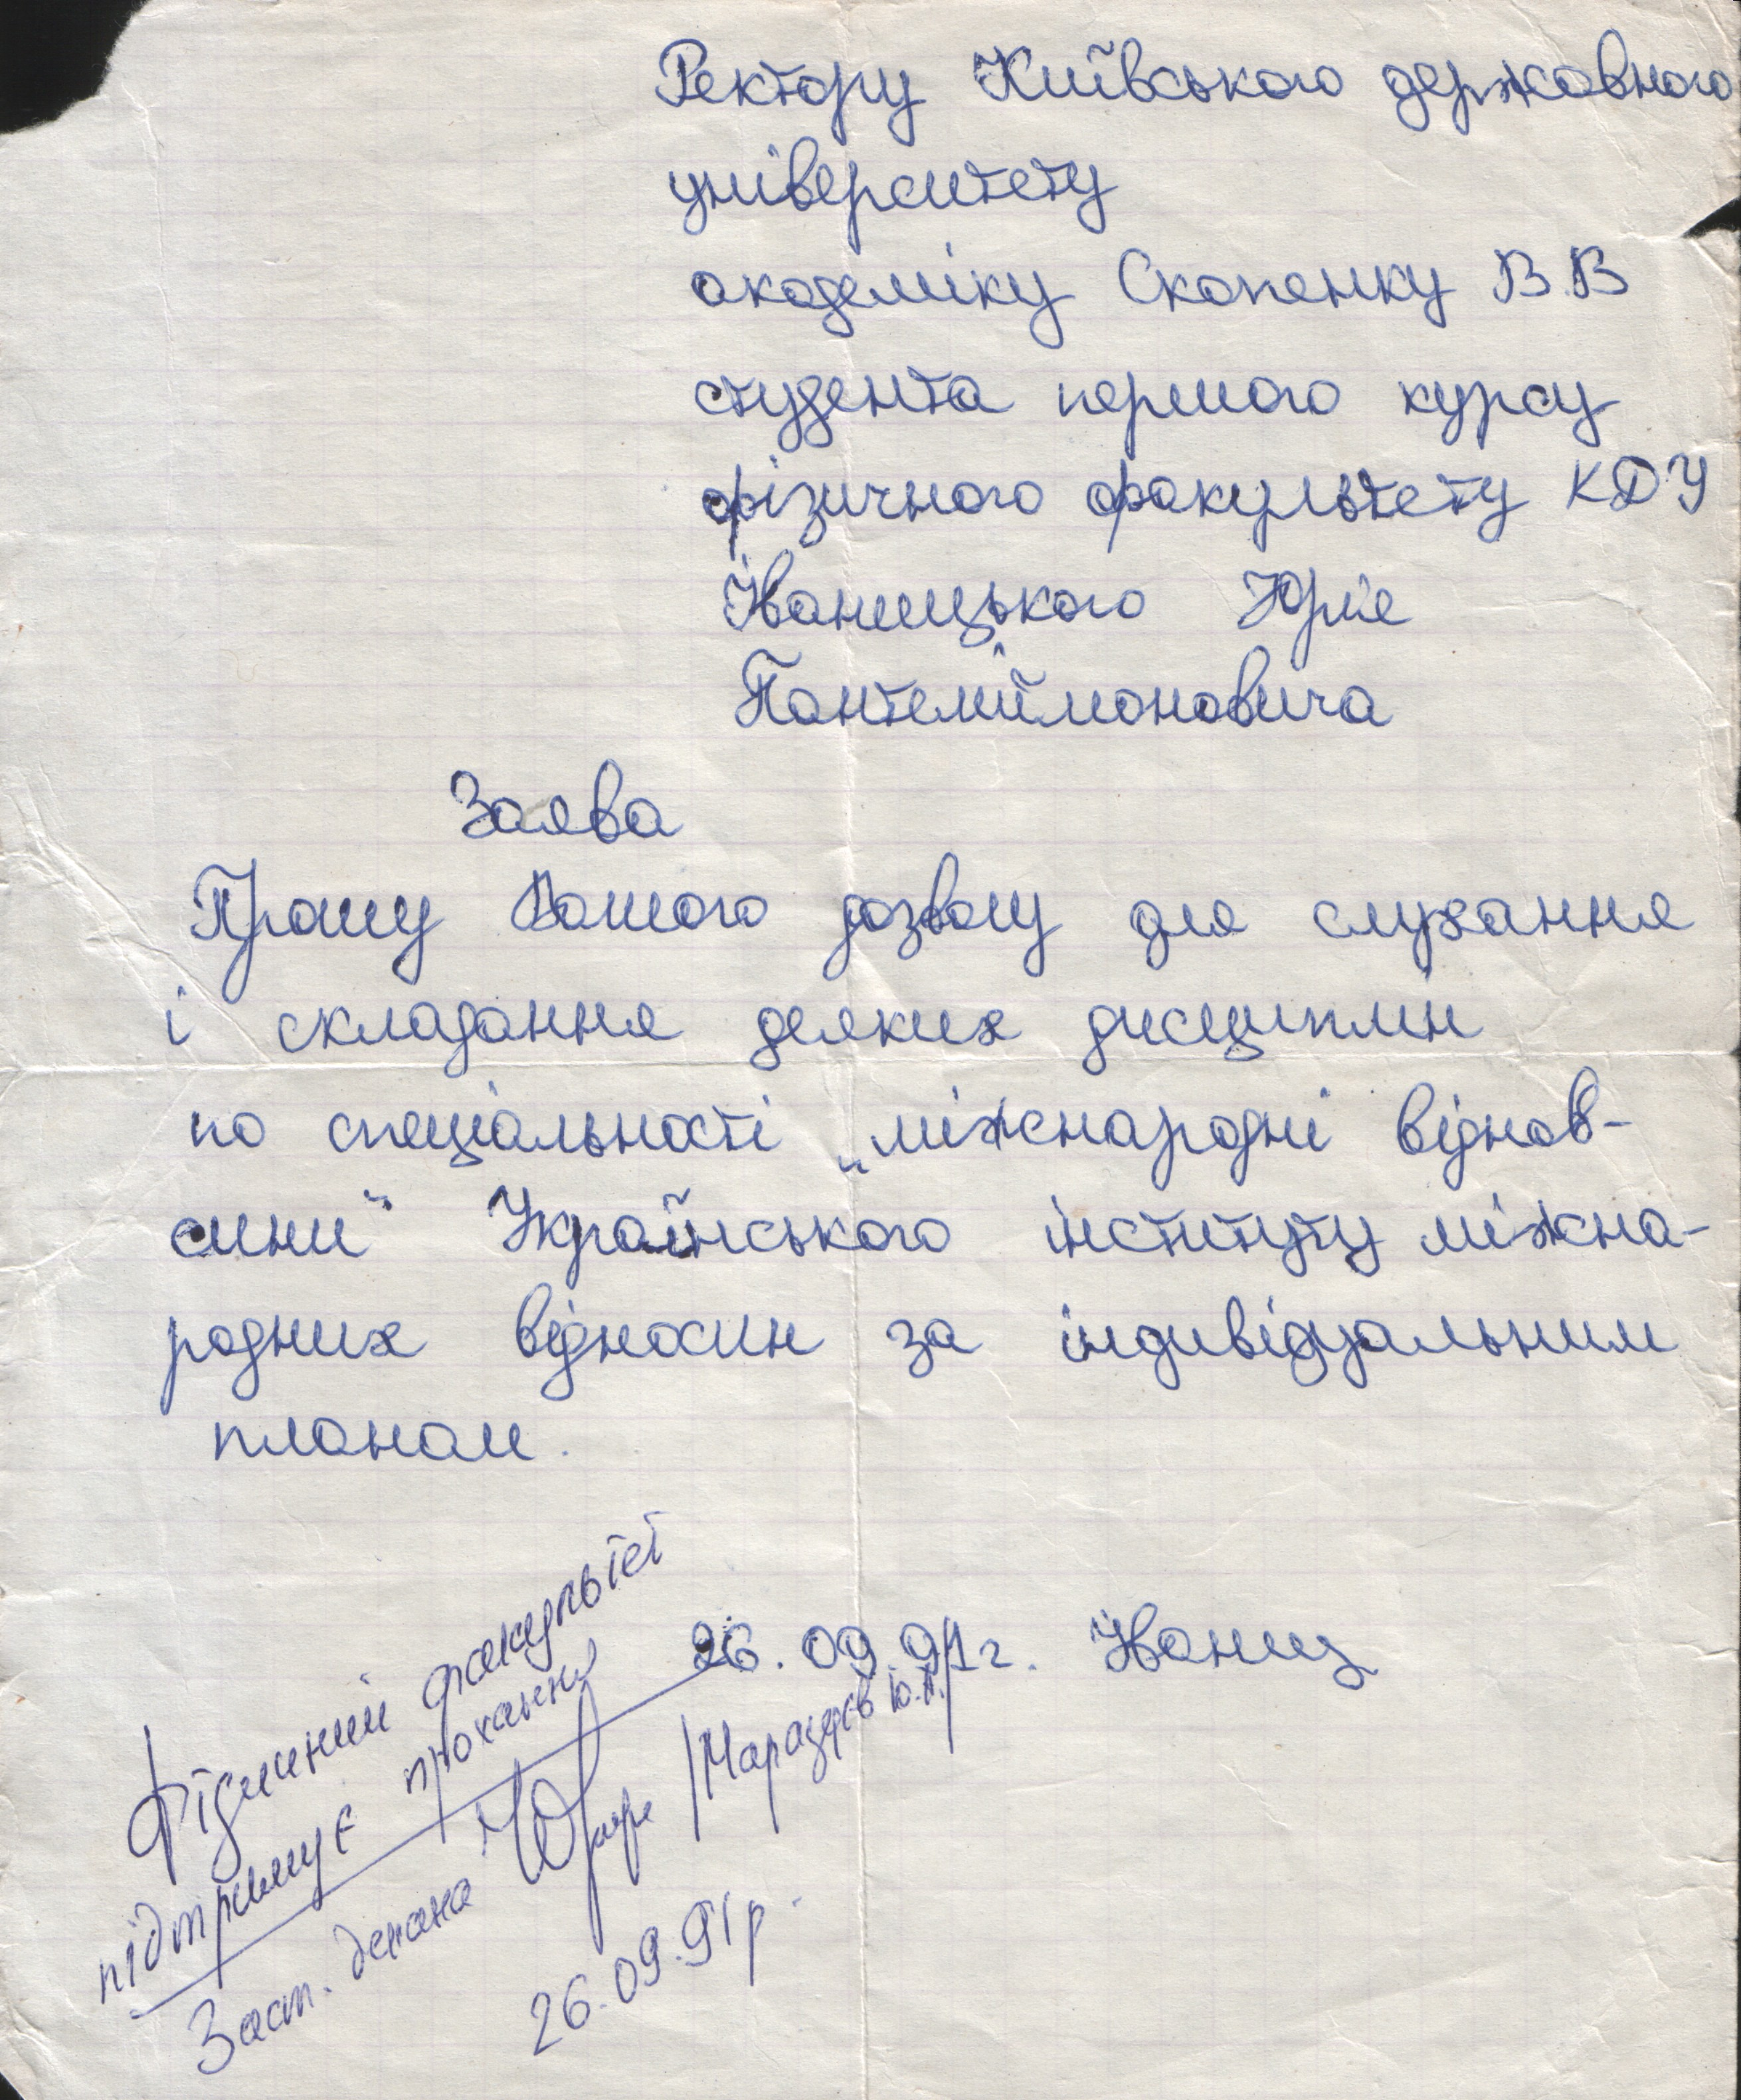 Ректору Київського державного
університету
академіку Скопенку В.В
студента першого курсу
фізичного факультету КДУ
Іваницького Юрія
Пантелиймоновича
Заява
Прошу Вашого дозволу для слухання
і складання деяких дисциплін
по спеціальності „міжнародні віднов-
сини" Українського інституту міжна-
родних відносин за індивідуальним
планом.
26.09.91г. Іваниц
Фізичний факультет
підтримує прохання
Заст. декана
26.09.91р.